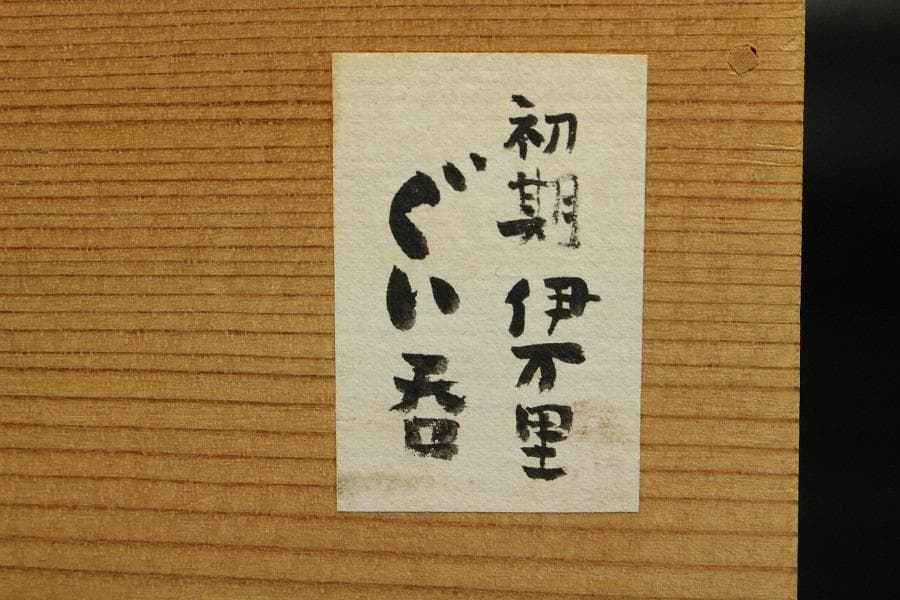 初期伊万里
ぐい呑